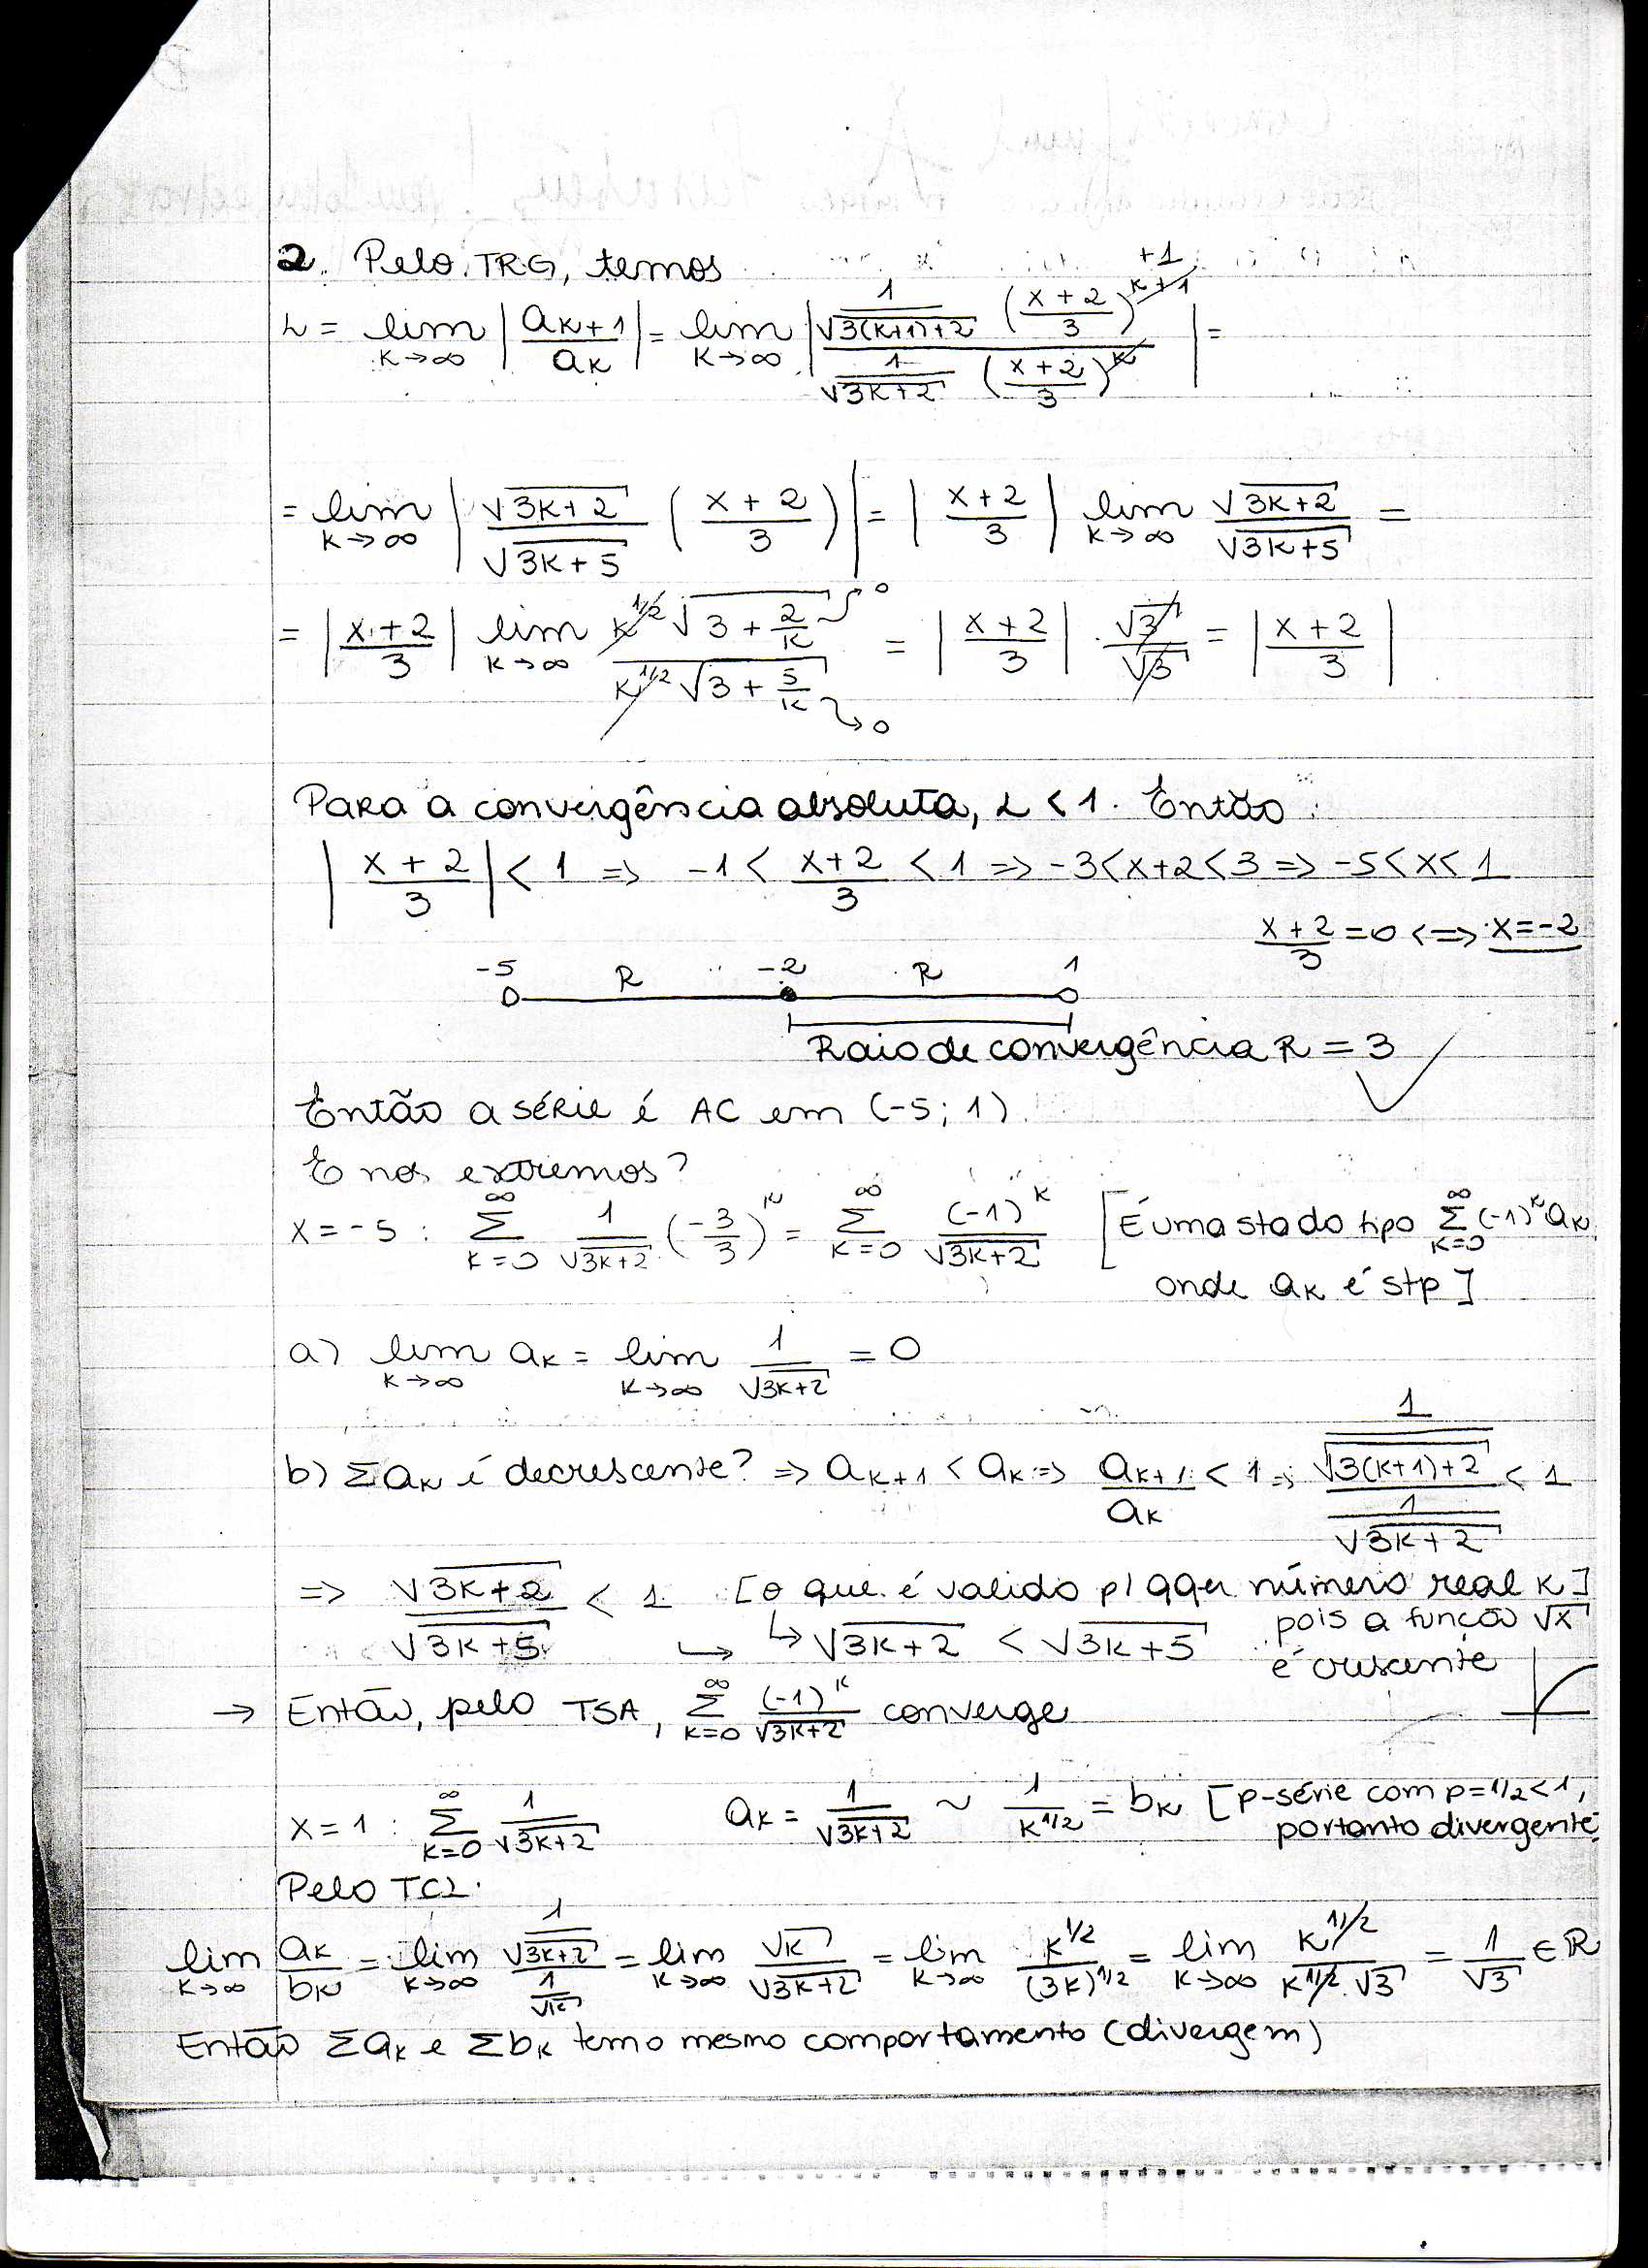 2. Pelo TRG, temos
L = lim_{K→∞} |a_{K+1}/a_K| = lim_{K→∞} |(1/√(3(K+1)+2) ((x+2)/3)^{K+1})/(1/√(3K+2) ((x+2)/3)^K)| = +1
= lim_{K→∞} |√(3K+2)/√(3K+5) ((x+2)/3)| = |(x+2)/3| lim_{K→∞} √(3K+2)/√(3K+5) =
= |(x+2)/3| lim_{K→∞} (K^{1/2} √(3+2/K))/(K^{1/2} √(3+5/K)) →0 →0 = |(x+2)/3| · √3/√3 = |(x+2)/3|
Para a convergência absoluta, L < 1. Então:
|(x+2)/3| < 1 ⇒ -1 < (x+2)/3 < 1 ⇒ -3<x+2<3 ⇒ -5<x<1
(x+2)/3 = 0 <=> x=-2
-5 R -2 R 1
Raio de convergência R = 3 ✓
Então a série é AC em (-5; 1)
E nos extremos?
x = -5 : Σ_{K=0}^∞ 1/√(3K+2) (-3/3)^K = Σ_{K=0}^∞ (-1)^K/√(3K+2) [É uma sta do tipo Σ_{K=0}^∞ (-1)^K a_K,
onde a_K é stp]
a) lim_{K→∞} a_K = lim_{K→∞} 1/√(3K+2) = 0
b) Σa_K é decrescente? ⇒ a_{K+1} < a_K ⇒ a_{K+1}/a_K < 1 ⇒ (1/√(3(K+1)+2))/(1/√(3K+2)) < 1
⇒ √(3K+2)/√(3K+5) < 1 [o que é valido p/ qqer número real K]
↳ ↳ √(3K+2) < √(3K+5) pois a função √x
é crescente
→ Então, pelo TSA, Σ_{K=0}^∞ (-1)^K/√(3K+2) converge
x = 1 : Σ_{K=0}^∞ 1/√(3K+2) a_K = 1/√(3K+2) ~ 1/K^{1/2} = b_K [p-série com p=1/2<1,
portanto divergente]
Pelo TCL:
lim_{K→∞} a_K/b_K = lim_{K→∞} (1/√(3K+2))/(1/√K) = lim_{K→∞} √K/√(3K+2) = lim_{K→∞} K^{1/2}/(3K)^{1/2} = lim_{K→∞} K^{1/2}/(K^{1/2}·√3) = 1/√3 ∈ R
Então Σa_K e Σb_K tem o mesmo comportamento (divergem)